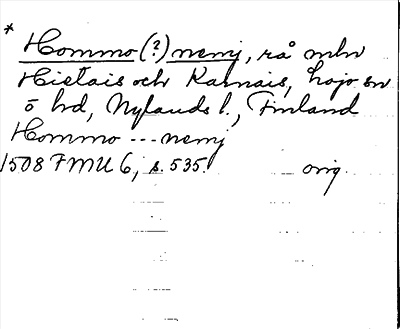 * Hommo (?) nemj, rå mln
Hietais och Karnais, Lojo sn
ö hd, Nylands l., Finland
Hommo --- nemj
1508 FMU 6, s. 535. orig.